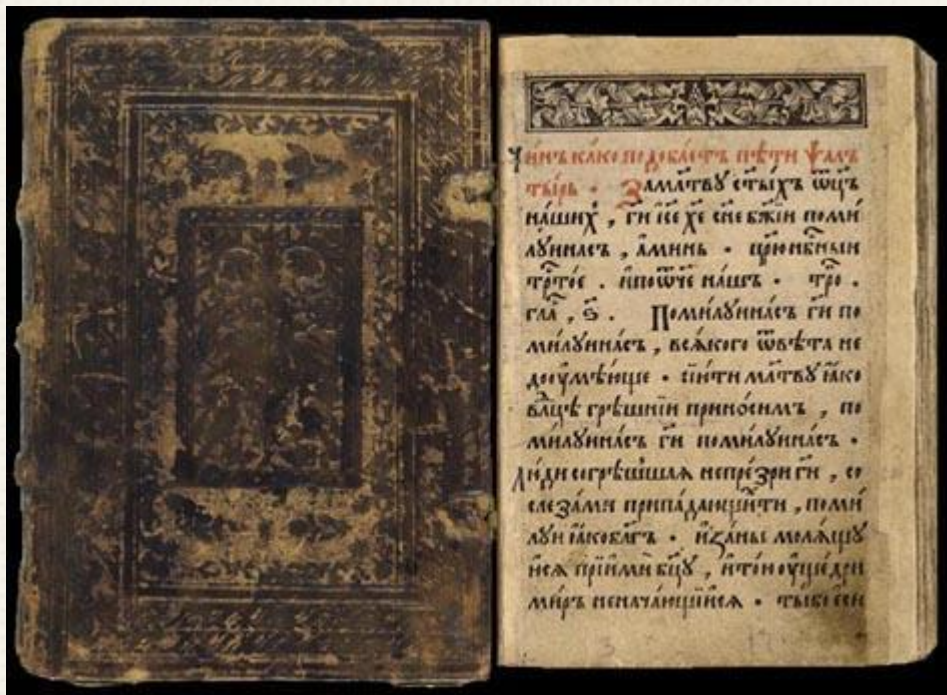 Чи́нъ ка́ко подоба́етъ пѣ́ти ѱал
ты́рь · За мл҃тву ст҃ы́хъ ѡц҃ъ
на́шихъ , гн҃ і҆с҃е хе҃ сн҃е бж҃іи поми
лꙋи на́съ , а҆ми́нь · цр҃ю нбⷭ҇ныи
трⷭ҇то́е . и҆ по ѿч҃е на́шъ · тро .
гла , ѕ҃ . Поми́лꙋи на́съ гн҃ по
ми́лꙋи на́съ , вся́кого ѿвѣ́та не
доꙋмѣ́юще · сїи́ ти мл҃твꙋ ꙗ҆́ко
вл҃цѣ грѣ́шнїи прино́симъ , по
ми́лꙋи на́съ гн҃ поми́лꙋи на́съ ·
лю́ди согрѣ́шшая не пре́зри гн҃ , со
слеза́ми припа́дающи́я ти , поми
лꙋи ꙗ҆́ко бл҃гъ · и҆ за ны̀ моля́щꙋ
ꙋ́ся прїимѝ бцⷣꙋ , и҆ то́ю ꙋ҆ще́дри
ми́ръ не на́чающїися · ты́ бо еси